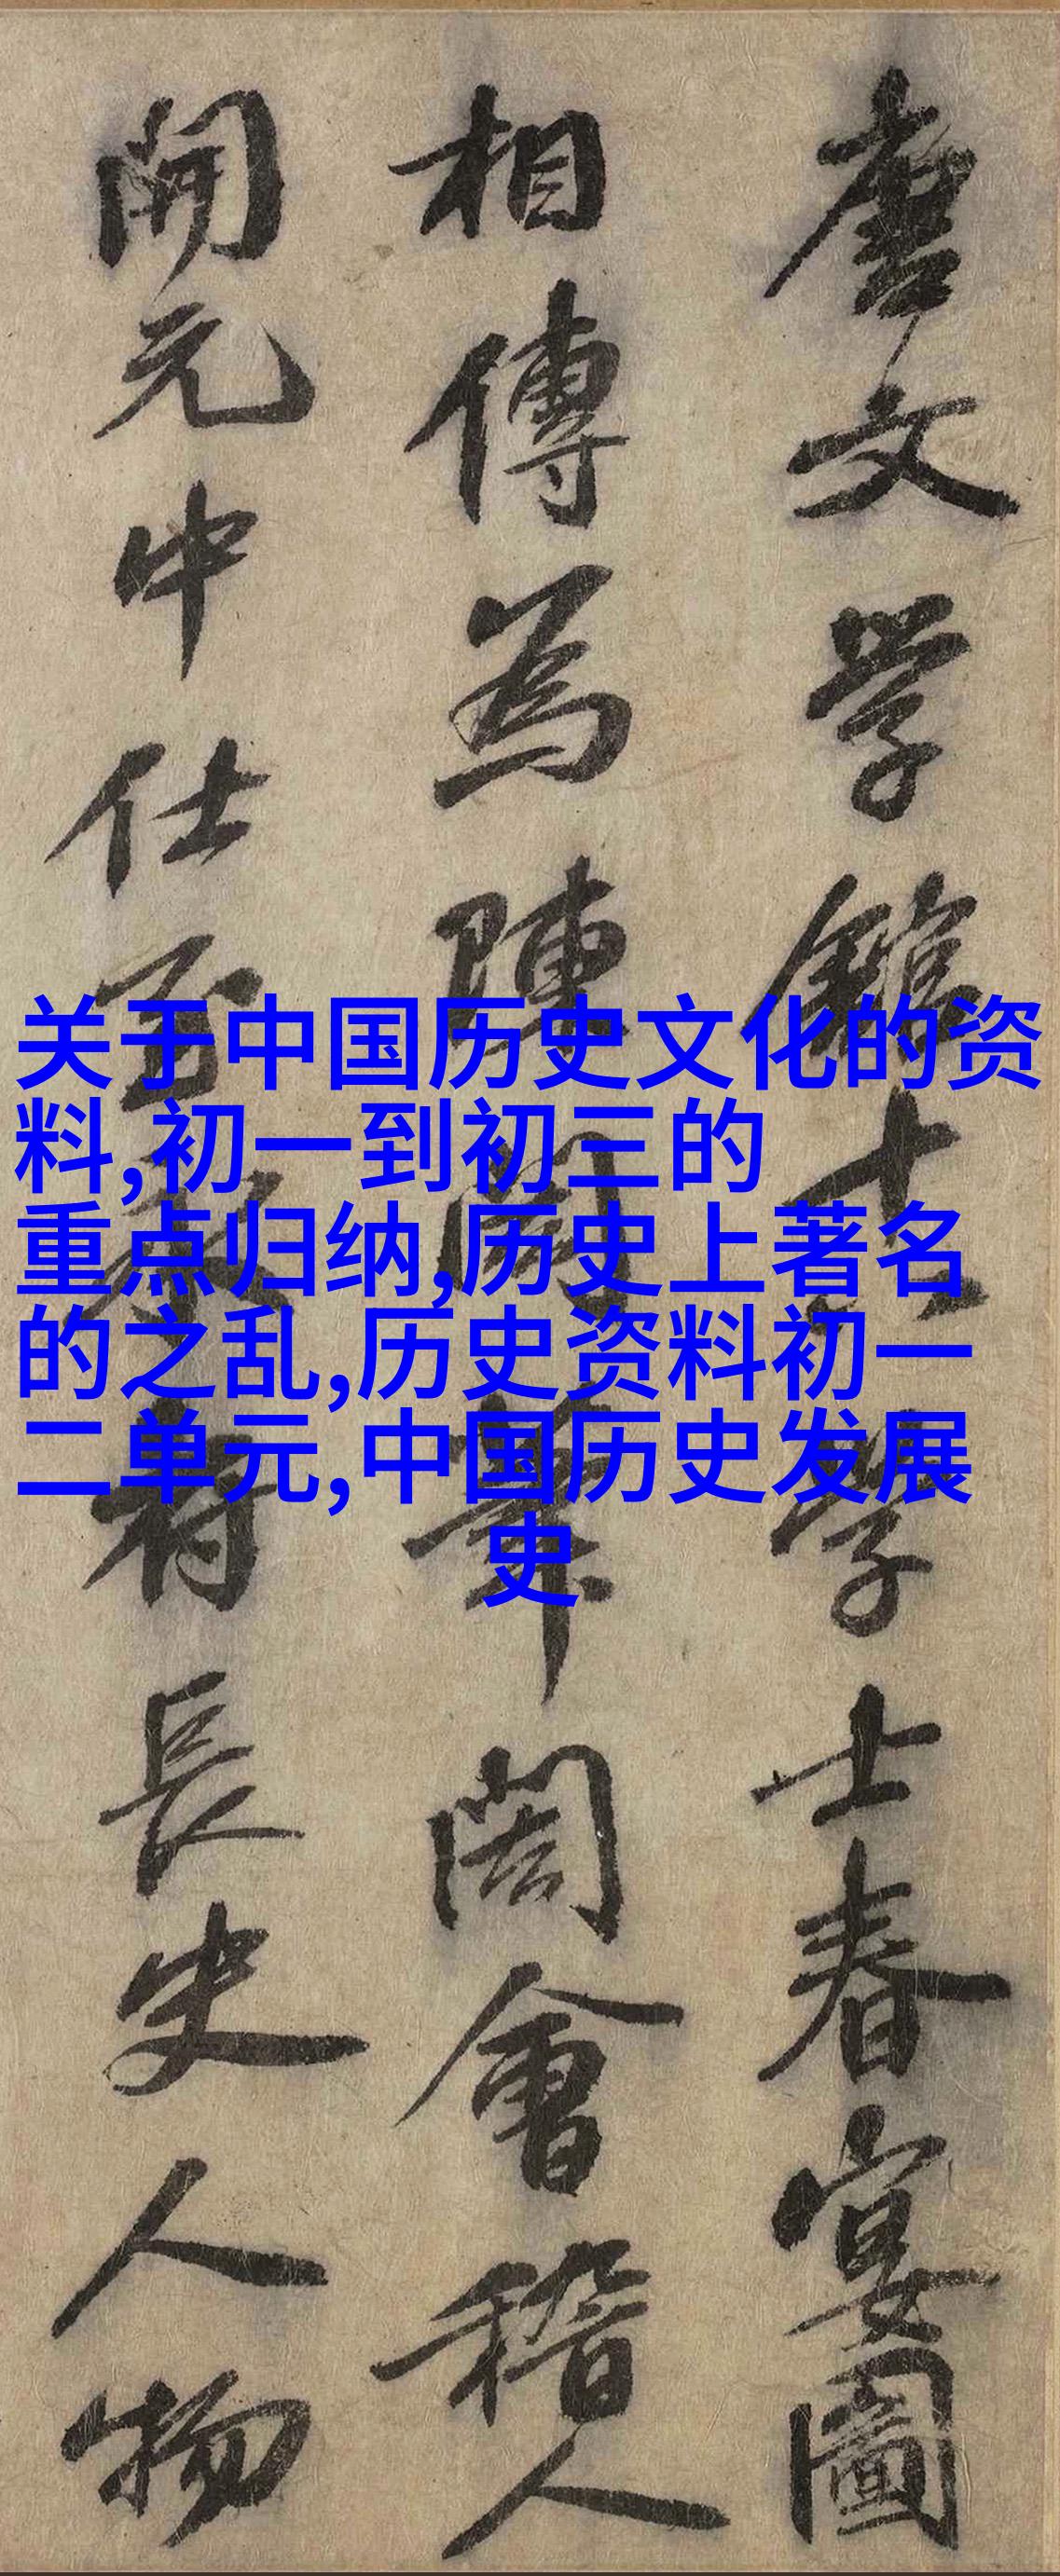 唐文学館十八学士春宴圖
相傳為陳閎筆閎會稽人
開元中仕至府長史人物
关于中国历史文化的资
料,初一到初三的
重点归纳,历史上著名
的之乱,历史资料初一
二单元,中国历史发展
史